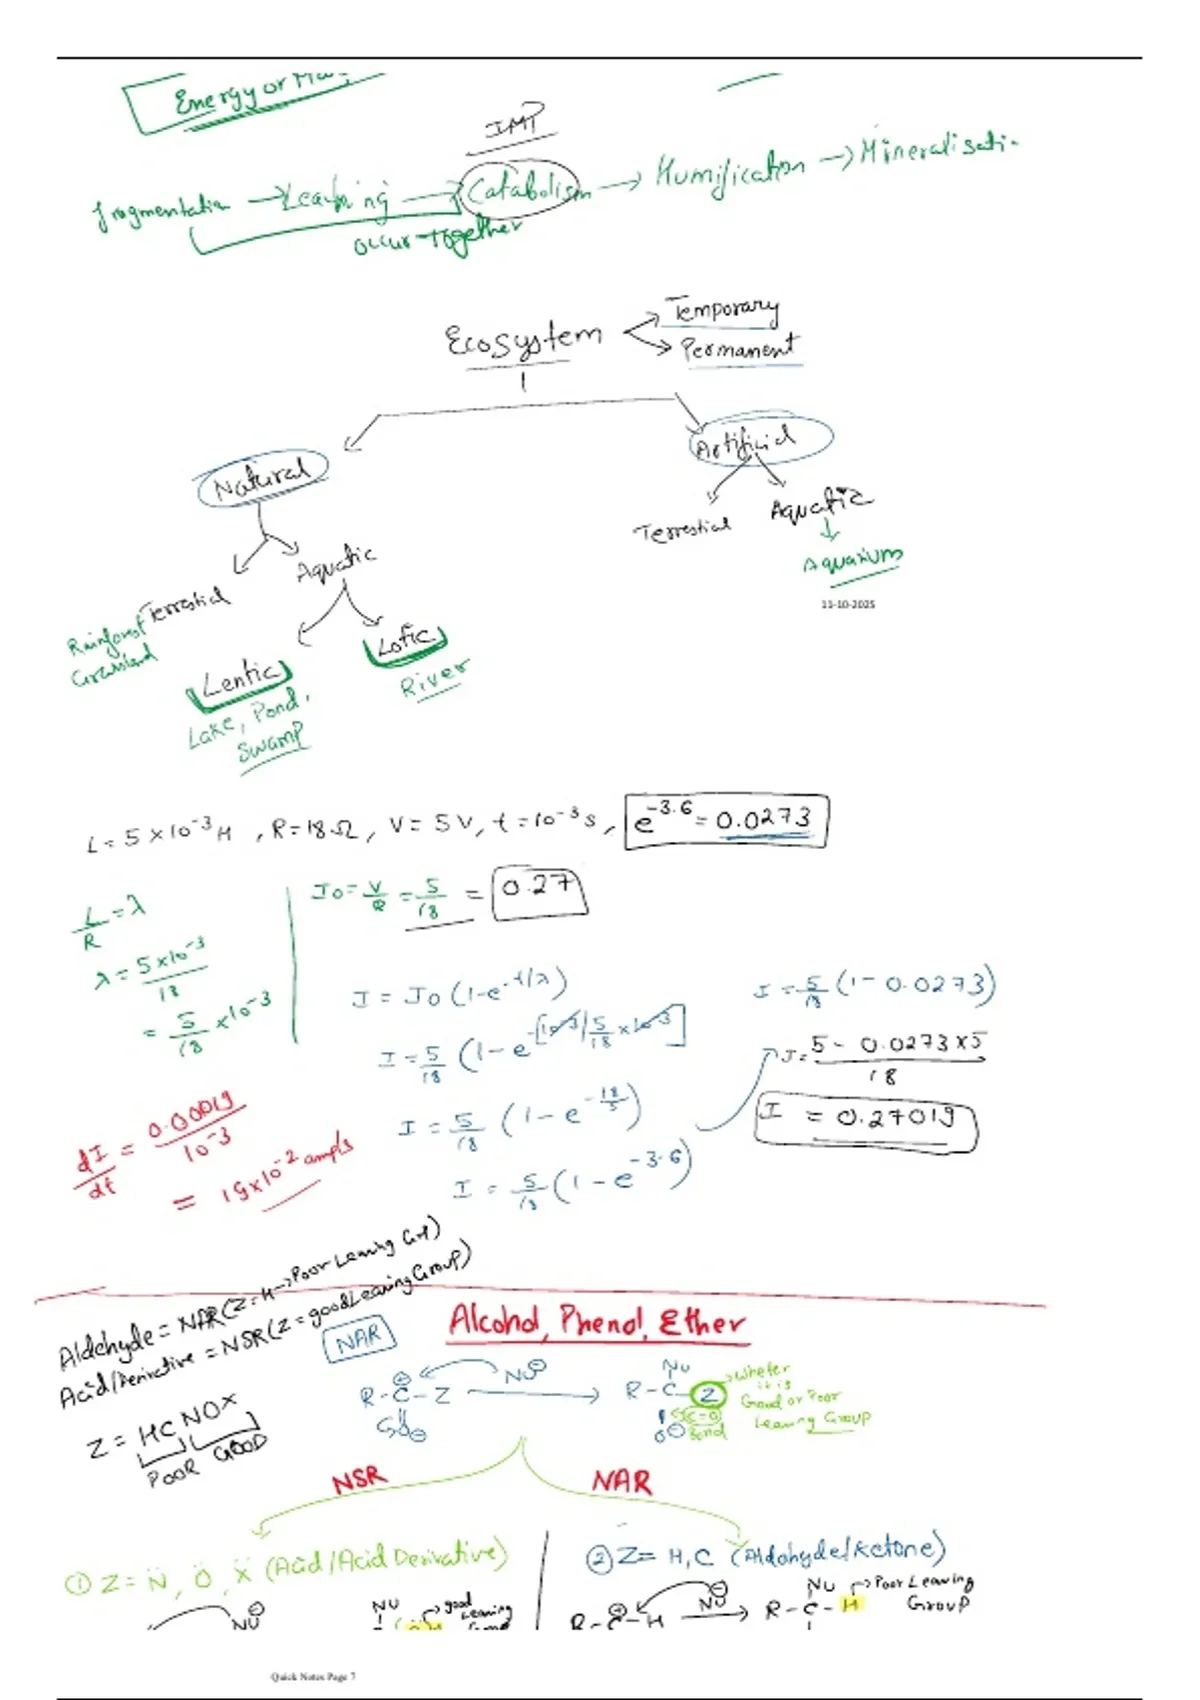 Energy or
IMP
fragmentation → Leaching → Catabolism → Humification → Mineralisati
occur together
Ecosystem
Temporary
Permanent
Natural
Artificial
Terrestrial
Aquatic
Aquarium
11-10-2025
Terrestrial
Aquatic
Rainforest
Grassland
Lentic
Lotic
Lake, Pond,
Swamp
River
L = 5 × 10⁻³ H , R = 18 Ω , V = 5 V, t = 10⁻³ s , e^-3.6 = 0.0273
L/R = λ
λ = 5×10⁻³/18
= 5/18 × 10⁻³
I0 = V/R = 5/18 = 0.27
I = I0 (1-e^-t/λ)
I = 5/18 (1 - e^-[10⁻³/5/18 × 10⁻³]
I = 5/18 (1 - e^-18/5)
I = 5/18 (1 - e^-3.6)
I = 5/18 (1 - 0.0273)
I = 5 - 0.0273 × 5/18
I = 0.27019
dI/dt = 0.00019/10⁻³
= 19×10⁻² amp/s
Aldehyde = NAR (Z = H → Poor Leaving Grp)
Acid/Derivative = NSR (Z = good Leaving Group)
Z = HCNOX
POOR GOOD
Alcohol, Phenol, Ether
NAR
R - C - Z
NU⊖
NU
R - C - Z
(C=O)
Bond
Wheter
it is
Good or Poor
Leaving Group
NSR
NAR
① Z = N, O, X (Acid/Acid Derivative)
② Z = H, C (Aldehyde/Ketone)
NU⊖
NU
good
Leaving
R - C - H
NU⊖
NU
R - C - H
Poor Leaving
Group
Quick Notes Page 7